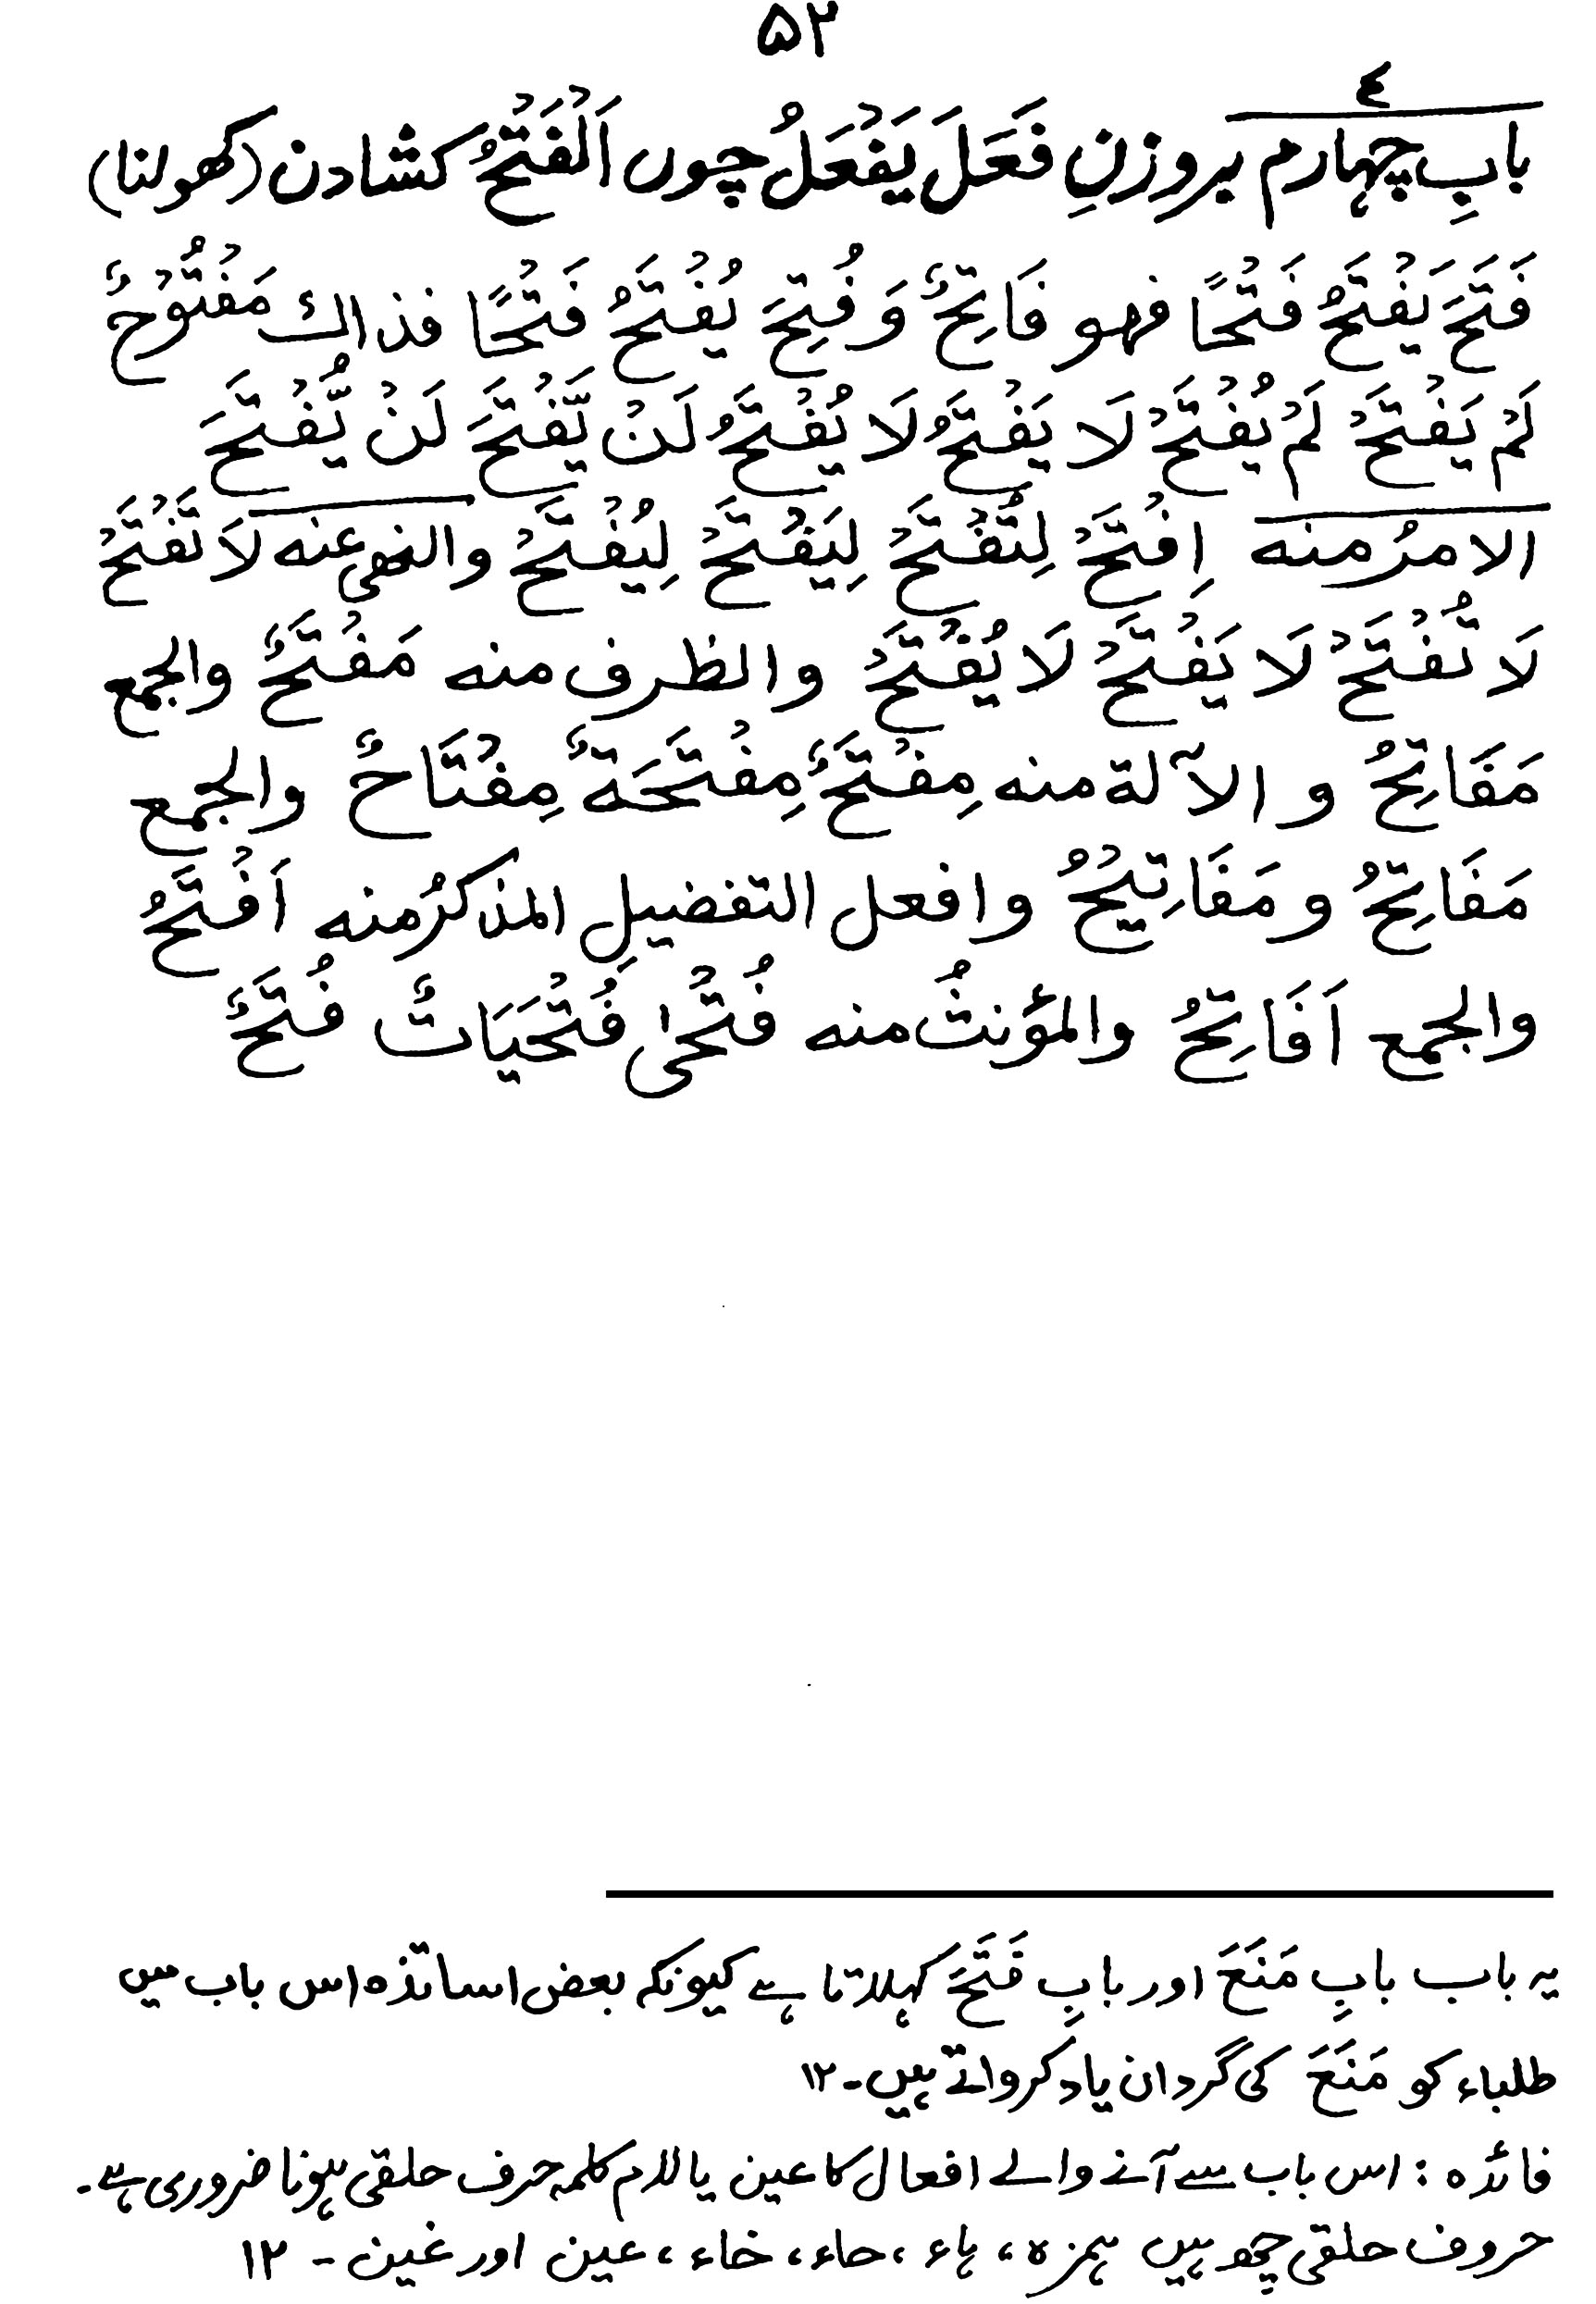 ۵۲
بابِ چہارم بروزنِ فَعَلَ يَفْعَلُ چوں اَلْفَتْحُ کشادن (کھولنا)
فَتَحَ يَفْتَحُ فَتْحًا فهو فَاتِحٌ وَ فُتِحَ يُفْتَحُ فَتْحًا فذ اك مَفْتُوْحٌ
لَمْ يَفْتَحْ لَمْ يُفْتَحْ لَا يَفْتَحُ لَا يُفْتَحُ لَنْ يَّفْتَحَ لَنْ يُّفْتَحَ
الامرُ منه اِفْتَحْ لِتُفْتَحْ لِيَفْتَحْ لِيُفْتَحْ والنهى عنه لَا تَفْتَحْ
لَا تُفْتَحْ لَا يَفْتَحْ لَا يُفْتَحْ والظرف منه مَفْتَحٌ والجمع
مَفَاتِحُ و الآلة منه مِفْتَحٌ مِفْتَحَةٌ مِفْتَاحٌ والجمع
مَفَاتِحُ و مَفَاتِيْحُ وافعل التفضيلِ المذكرُ منه اَفْتَحُ
والجمع اَفَاتِحُ والمؤنثُ منه فُتْحٰى فُتْحَيَاتٌ فُتَحٌ
یہ باب بابِ مَنَعَ اور بابِ فَتَحَ کہلاتا ہے کیونکہ بعض اساتذہ اس باب میں
طلباء کو مَنَعَ کی گردان یاد کرواتے ہیں۔ ۱۲
فائدہ : اس باب سے آنے والے افعال کا عین یا لام کلمہ حرف حلقی ہونا ضروری ہے۔
حروف حلقی چھ ہیں ہمزہ، ہاء، حاء، خاء، عین اور غین۔ ۱۲